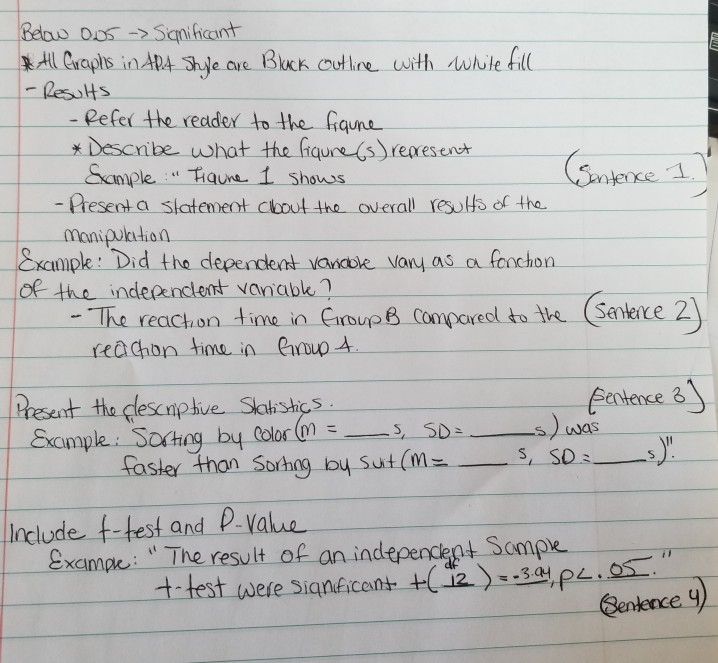 Below 0.05 -> Significant
* All Graphs in APA Style are Black outline with white fill
- Results
- Refer the reader to the figure
* Describe what the figure(s) represent
Sample: " Figure 1 shows (Sentence 1.)
- Present a statement about the overall results of the
manipulation
Example: Did the dependent variable vary as a fonction
of the independent variable?
- The reaction time in Group B compared to the (Sentence 2)
reaction time in Group A.
Present the descriptive Statistics. (Sentence 3)
Example: "Sorting by color (m = ____ s, SD = ____ s) was
faster than Sorting by suit (m = ____ s, SD = ____ s)".
Include t-test and P-value
Example: "The result of an independent Sample
t-test were significant t(df 12) = -3.94, p < .05."
(Sentence 4)